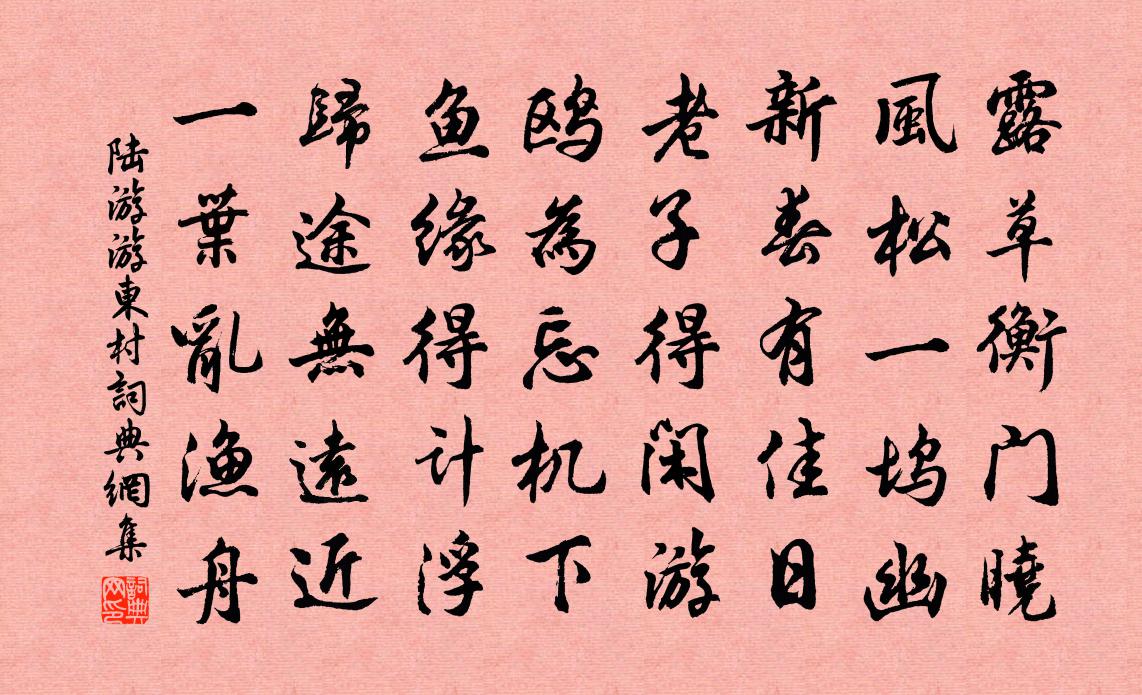 露草衡门曉
風松一坞幽
新春有佳日
老子得闲游
鸥為忘机下
鱼緣得计浮
歸途無遠近
一葉亂漁舟
陆游游東村詞典網集
詞典网印